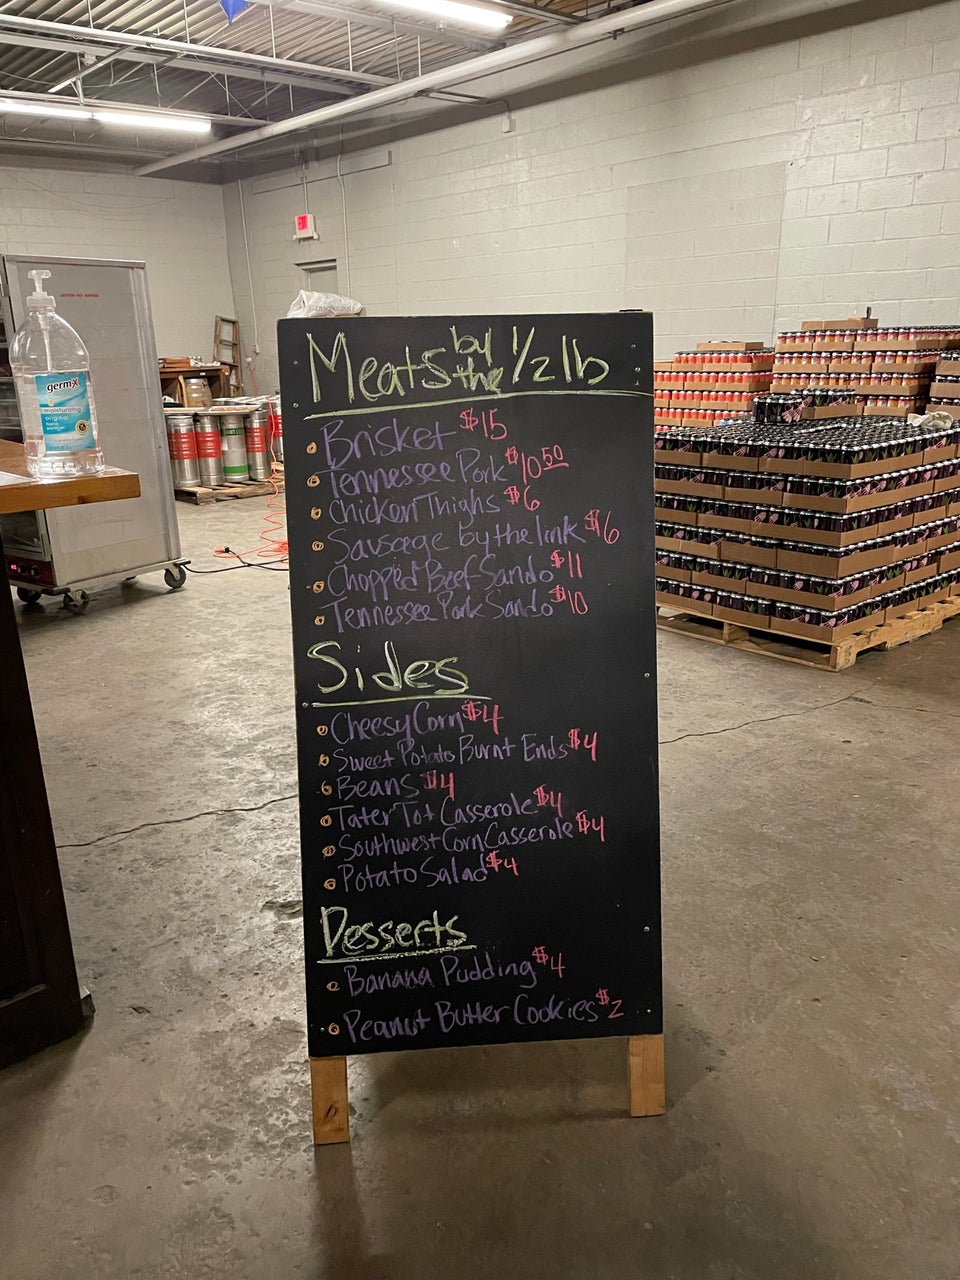 Meats by the 1/2 lb
Brisket $15
Tennessee Pork $10 50
Chicken Thighs $6
Sausage by the link $6
Chopped Beef Sando $11
Tennessee Pork Sando $10
Sides
Cheesy Corn $4
Sweet Potato Burnt Ends $4
Beans $4
Tater Tot Casserole $4
Southwest Corn Casserole $4
Potato Salad $4
Desserts
Banana Pudding $4
Peanut Butter Cookies $2
germ-X
moisturizing
original
hand
sanitizer
EXIT